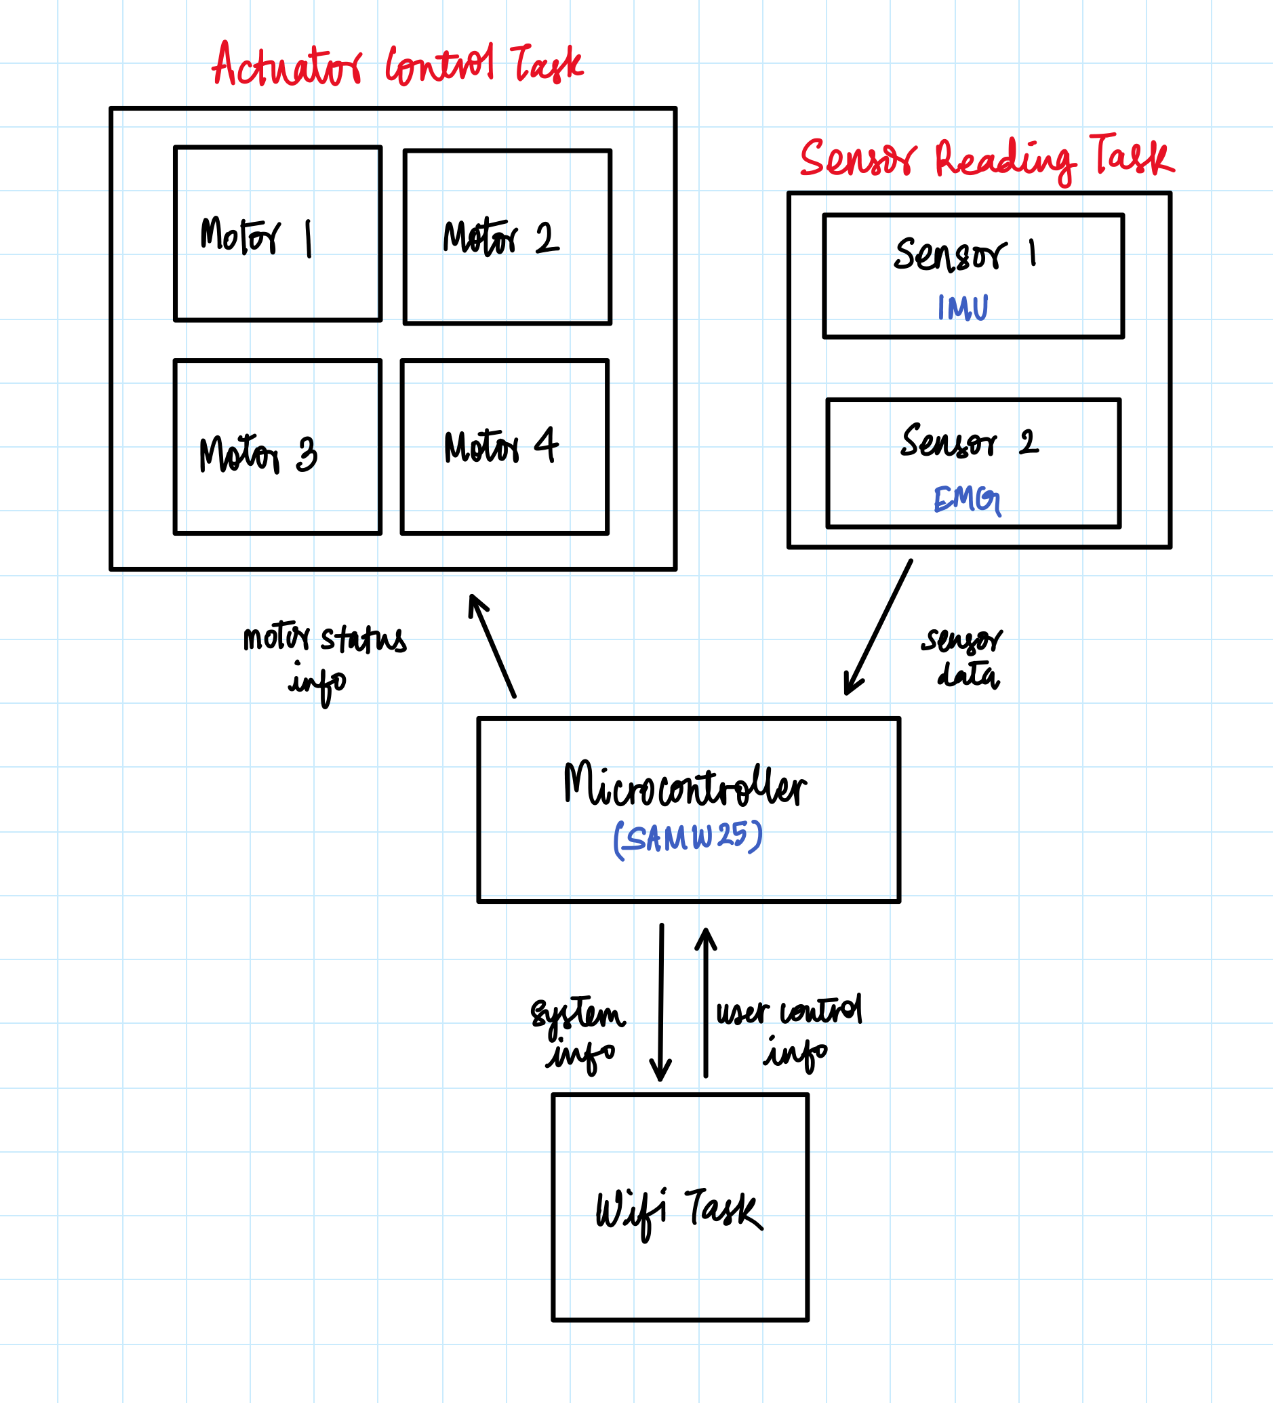 Actuator Control Task
Motor 1
Motor 2
Motor 3
Motor 4
Sensor Reading Task
Sensor 1
IMU
Sensor 2
EMG
motor status
info
sensor
data
Microcontroller
(SAMW25)
system
info
user control
info
Wifi Task